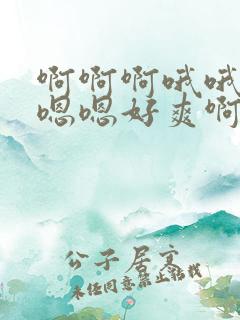 啊啊啊哦哦
嗯嗯好爽啊
公子居高
未经同意禁止转载